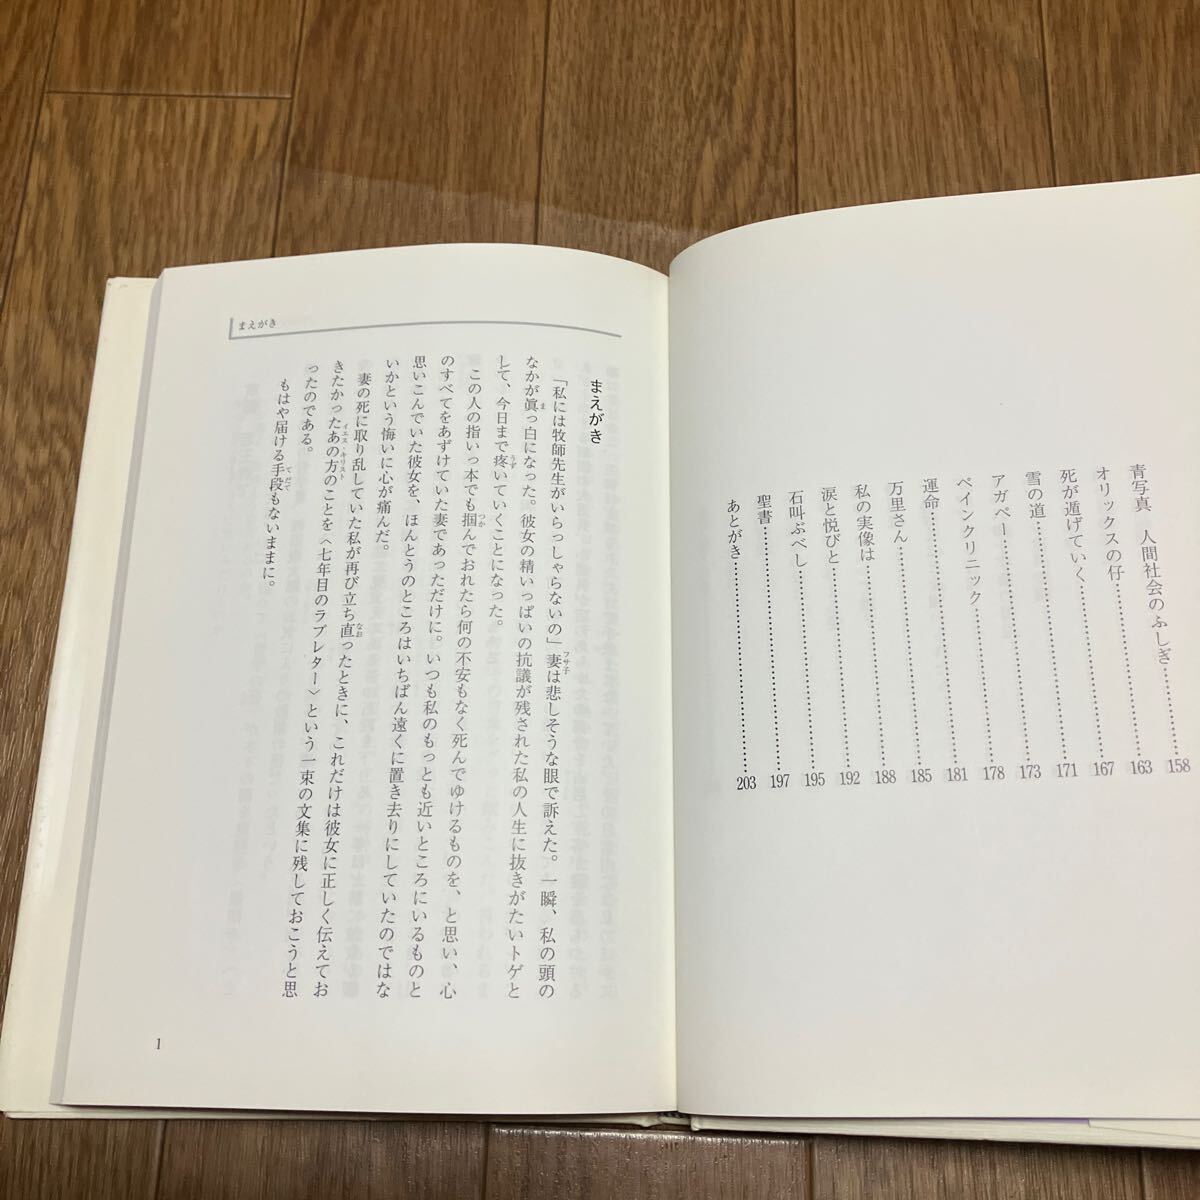 青写真 人間社会のふしぎ……………158
オリックスの仔……………163
死が遁げていく……………167
雪の道……………171
アガペー……………173
ペインクリニック……………178
運命……………181
万里さん……………185
私の実像は……………188
涙と悦びと……………192
石叫ぶべし……………195
聖書……………197
あとがき……………203
まえがき
まえがき
「私には牧師先生がいらっしゃらないの」妻は悲しそうな眼で訴えた。一瞬、私の頭の
フサ子
なかが眞っ白になった。彼女の精いっぱいの抗議が残された私の人生に抜きがたいトゲと
ま
して、今日まで疼いていくことになった。
うず
この人の指いっ本でも掴んでおれたら何の不安もなく死んでゆけるものを、と思い、心
つか
のすべてをあずけていた妻であっただけに。いつも私のもっとも近いところにいるものと
思いこんでいた彼女を、ほんとうのところはいちばん遠くに置き去りにしていたのではな
いかという悔いに心が痛んだ。
妻の死に取り乱していた私が再び立ち直ったときに、これだけは彼女に正しく伝えてお
なお
きたかったあの方のことを〈七年目のラブレター〉という一束の文集に残しておこうと思
イエス・キリスト
ったのである。
もはや届ける手段もないままに。
てだて
1